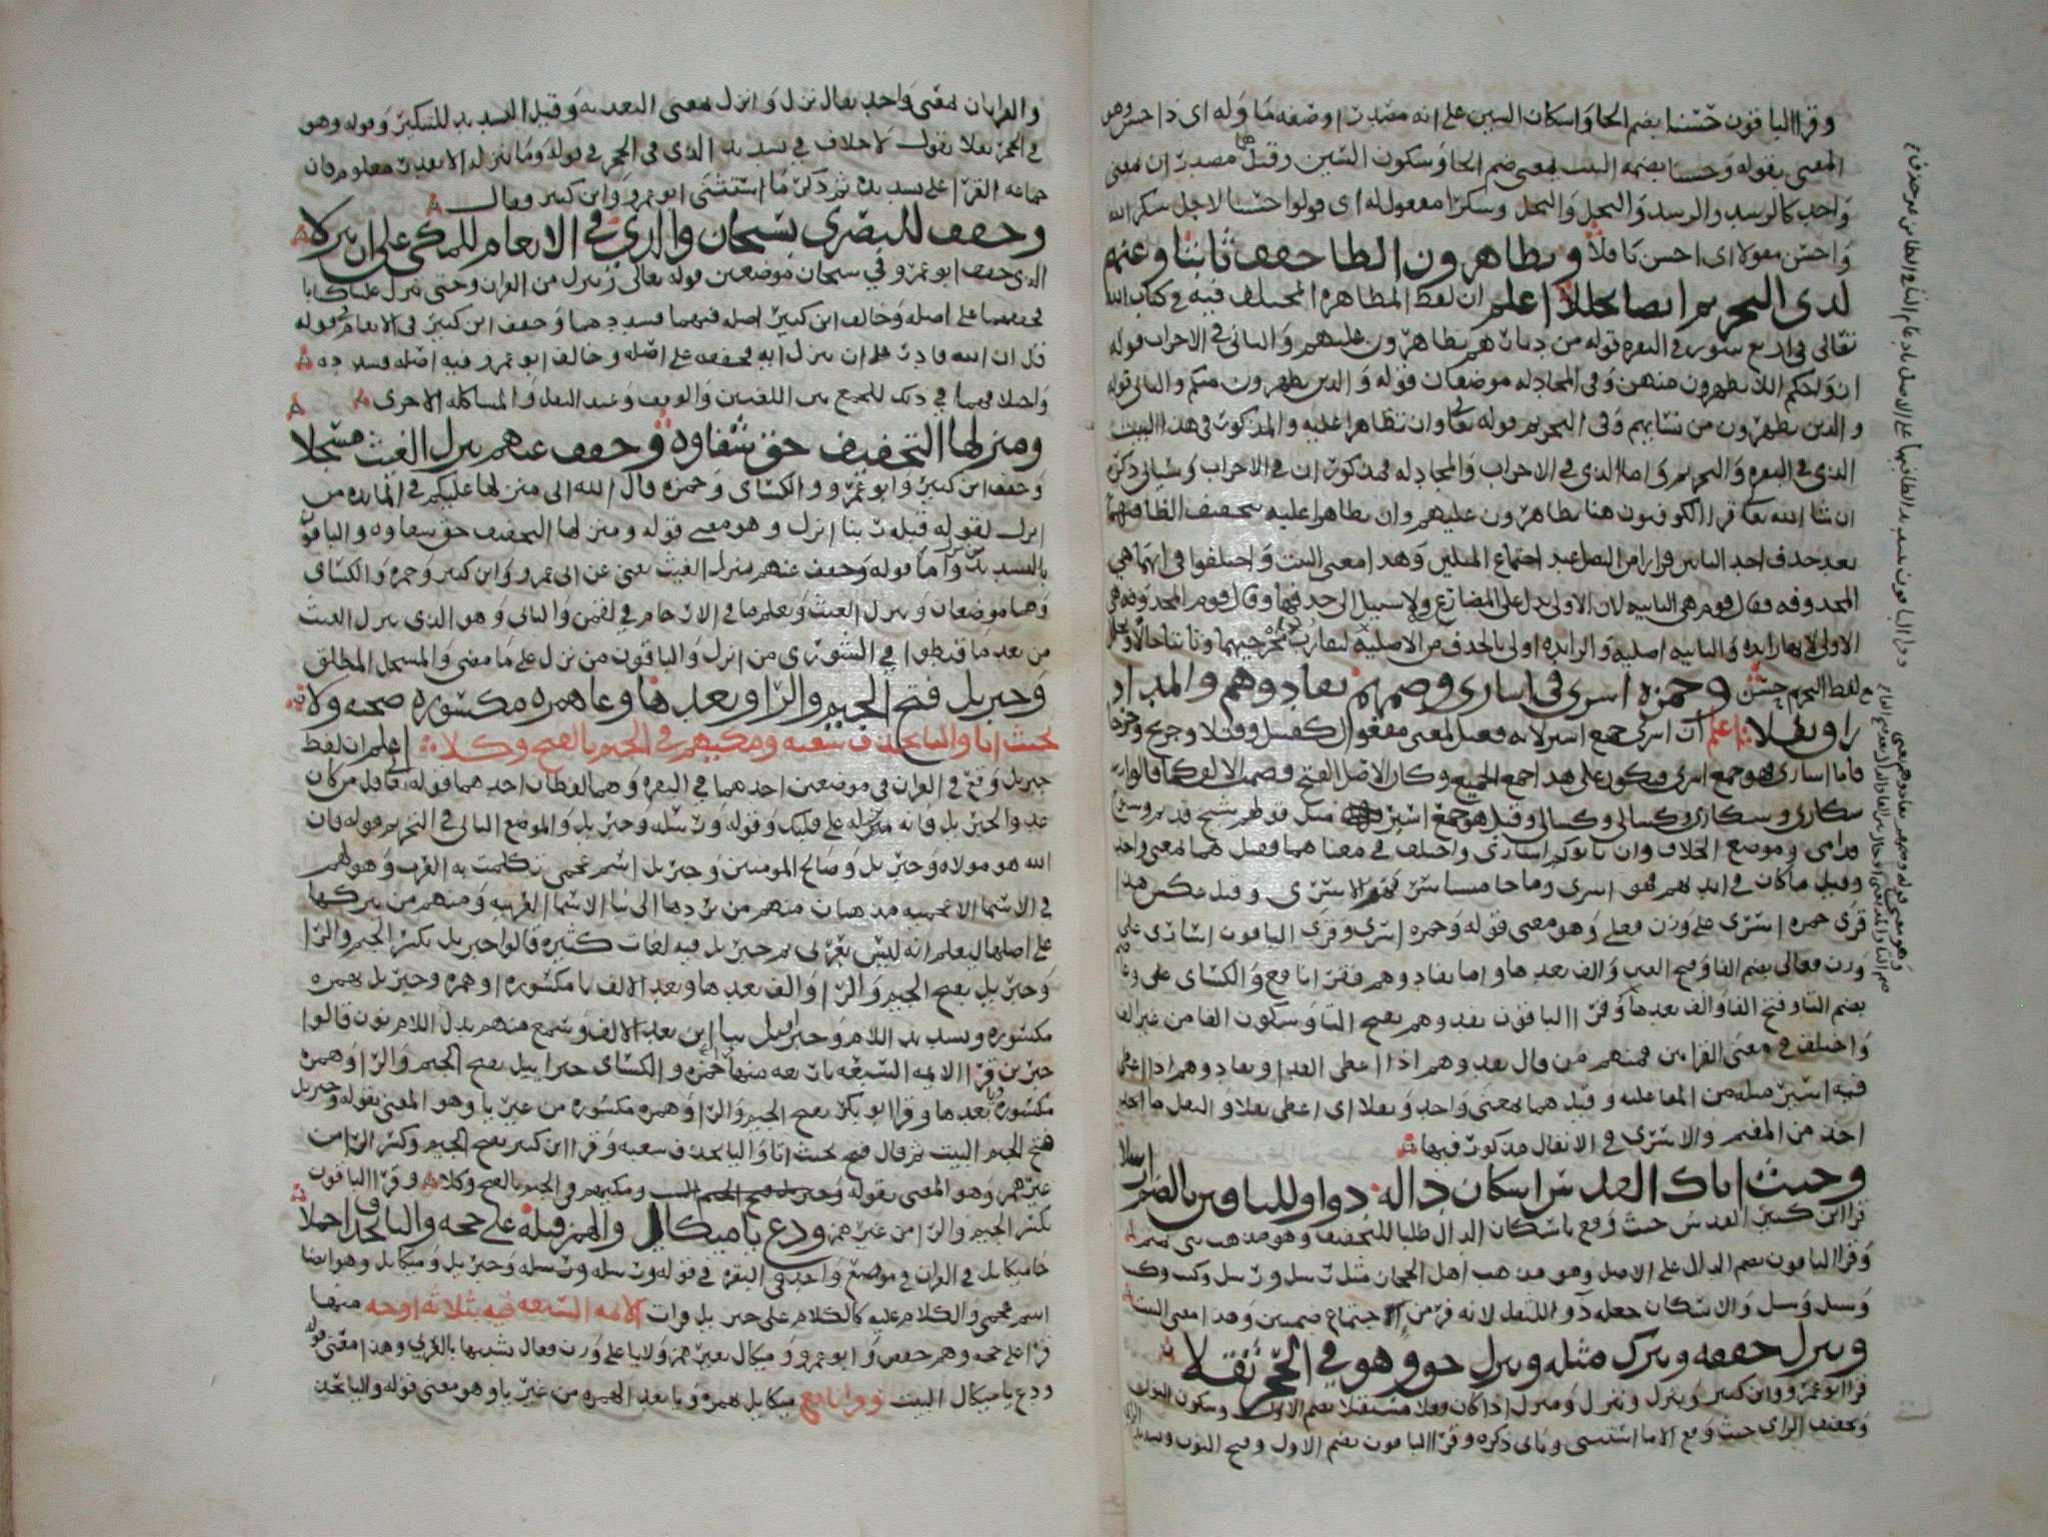 وقرا الباقون حسنا بضم الحا واسكان السين على انه مصدر او صفه ما وله اى ذا حسن وهو
المعنى بقوله وحسنا بضمه البيت بمعنى ضم الحا وسكون السين وقيل هما مصدران بمعنى
واحد كالرسد والرسد والبخل والبخل وسكرا مفعول له اى قولوا حسنا لاجل سكر الله
واحسن مقولا اى احسن ناقلا وتظاهرون الظا خفف ثابتا وعنهم
لدى التحريم ايضا تحللا اعلم ان لفظ المظاهره المختلف فيه فى كتاب الله
تعالى فى اربع سور فى البقره قوله من ديارهم تظاهرون عليهم والثانى فى الاحزاب قوله
ازواجكم اللا تظهرون منهن وفى المجادله موضعان قوله والذين يظهرون منكم والثانى قوله
والذين يظهرون من نسايهم وفى التحريم قوله تعالى وان تظاهرا عليه والمذكور فى هذا البيت
الذى فى البقره والتحريم واما الذى فى الاحزاب والمجادله فمذكوران فى الاحزاب وسياتى ذكره
ان شا الله تعالى قرا الكوفيون هنا تظاهرون عليهم وان تظاهرا عليه بتخفيف الظا فيهما
بعد حذف احد التاين فرارا من الثقل عند اجتماع المثلين وهذا معنى البيت واختلفوا فى ايتهما هى
المحذوفه فقال قوم هى الثانيه لان الاولى تدل على المضارع ولا سبيل الى حذفها وقال قوم المحذوفه هى
الاولى لانها زايده والثانيه اصليه والزايده اولى بالحذف من الاصليه لتقارب مخرجيهما وثابتا حال
لفظ التحريم حسن وحمزه اسرى فى اسارى وضمهم تفادوهم والمد اذ
راق نفلا اعلم ان اسرى جمع اسير لانه فعيل بمعنى مفعول كقتيل وقتلا وجريح وجرحا
فاما اسارى فهو جمع اسرى فيكون على هذا جمع الجميع وكان الاصل الفتح فضمت الالف كما قالوا
سكارى وسكارى وكسالى وكسالى وقيل هو جمع اسير مثل قولهم شيخ قديم وشيوخ
قدامى وموضع الخلاف وان ياتوكم اسارى واختلف فى معناهما فقيل هما بمعنى واحد
وقيل ما كان فى ايديهم فهو اسرى وما جا مستاسر فهو الاسرى وقيل عكس هذا
قرى حمزه اسرى على وزن فعلى وهو معنى قوله وحمزه اسرى وقرى الباقون اسارى على
وزن فعالى بضم الفا وفتح العين والف بعدها واما تفادوهم فقرا نافع والكسائى وعاصم
بضم التا وفتح الفا والف بعدها وقرا الباقون تفدوهم بفتح التا وسكون الفا من غير الف
واختلف فى معنى القراتين فمنهم من قال تفدوهم اذا اعطى الفدا وتفادوهم اذا اعطى
فيه اسير مثله من المفاعله وقيل هما بمعنى واحد ونفلا اى اعطى نفلا والنفل ما اخذ
اخذ من المغنم والاسرى فى الانفال مذكور فيها
وحيث اتاك القدس اسكان داله دوا وللباقين بالضم ارسلا
قرا ابن كثير القدس حيث وقع باسكان الدال طلبا للتخفيف وهو مذهب بنى تميم
وقرا الباقون بضم الدال على الاصل وهو مذهب اهل الحجاز مثل رسل ورسل وكتب وكتب
وسبل وسبل والاسكان جعله دوا للثقل لانه فر من الاجتماع ضمتين وهذا معنى البيت
وينزل خففه وتنزل مثله وننزل حق وهو فى الحجر ثقلا
قرا ابو عمرو وابن كثير وينزل وتنزل وننزل اذا كان فعلا مستقبلا بضم الاول وسكون النون
وتخفيف الزاى حيث وقع الا ما استثنى وياتى ذكره وقرا الباقون بضم الاول وفتح النون وتشديد الزاى
وقرا الباقون بتشديد الظا فيهما على الاصل بادغام التا فى الظا من غير حذف
وهو معنى قوله وضمهم تفادوهم يعنى
ضم التا والمد يعنى ادخال الف بين الفا والدال
والقراتان بمعنى واحد يقال نزل وانزل بمعنى التعديه وقيل التشديد للتكثير وقوله وهو
فى الحجر ثقلا يقول لا خلاف فى تشديد الذى فى الحجر فى قوله وما ننزله الا بقدر معلوم فان
جماعه القرا على تشديده ثم ذكر ما استثنى ابو عمرو وابن كثير وقال
وخفف للبصرى بسبحان والذى فى الانعام للمكى على ان ينزلا
الذى خفف ابو عمرو فى سبحان موضعين قوله تعالى وننزل من القران وحتى تنزل علينا كتابا
فخففهما على اصله وخالف ابن كثير اصله فيهما فشددهما وخفف ابن كثير فى الانعام قوله
قل ان الله قادر على ان ينزل ايه فخففه على اصله وخالف ابو عمرو فيه اصله فشدده
واختلافهما فى ذلك للجمع بين اللغتين والوقف وعند النقل والمساكله الاخرى
ومنزلها التخفيف حق شفاوه وخفف عنهم ينزل الغيث مسجلا
وخفف ابن كثير وابو عمرو والكسائى وحمزه قال الله انى منزلها عليكم فى المايده من
انزل لقوله قبله ربنا انزل وهو معنى قوله ومنزلها التخفيف حق شفاوه والباقون
بالتشديد من نزل واما قوله وخفف عنهم ينزل الغيث يعنى عن ابى عمرو وابن كثير وحمزه والكسائى
وهما موضعان وينزل الغيث ويعلم ما فى الارحام فى لقمن والثانى وهو الذى ينزل الغيث
من بعد ما قنطوا فى الشورى من انزل والباقون من نزل على ما مضى والمسجل المطلق
وجبريل فتح الجيم والرا وبعدها وعا همزه مكسوره صحبه ولا
بحيث اتا واليا يحذف شعبه ومكيهم فى الجيم بالفتح وكلا اعلم ان لفظ
جبريل وقع فى القران فى موضعين احدهما فى البقره وهما لفظان احدهما قوله تعالى قل من كان
عدوا لجبريل فانه نزله على قلبك وقوله ورسله وجبريل والموضع الثانى فى التحريم قوله فان
الله هو مولاه وجبريل وصالح المومنين وجبريل اسم عجمى تكلمت به العرب وهو لهم
فى الاسما الاعجميه مذهبان منهم من يردها الى بنا الاسما العربيه ومنهم من يتركها
على اصلها ليعلم انه ليس بعربى ثم جبريل فيه لغات كثيره قالوا جبريل بكسر الجيم والرا
وجبريل بفتح الجيم والرا والف بعدها وبعد الالف يا مكسوره او همزه وجبريل بهمزه
مكسوره وتشديد اللام وجبراييل بيا اين بعد الالف وسمع منهم بدل اللام نون قالوا
جبرين قرا الايمه السبعه باربعه منها حمزه والكسائى جبراييل بفتح الجيم والرا وهمزه
مكسوره ويا بعدها وقرا ابو بكر بفتح الجيم والرا وهمزه مكسوره من غير يا وهو المعنى بقوله وجبريل
فتح الجيم البيت ثم قال فتح بحيث اتا واليا يحذف شعبه وقرا ابن كثير بفتح الجيم وكسر الرا من
غير همز وهو المعنى بقوله ومكيهم فى الجيم بالفتح وكلا وقرا الباقون
بكسر الجيم والرا من غير همز ودع يا ميكايل والهمز قبله على حجه واليا يحذف اجملا
جا ميكايل فى القران فى موضع واحد فى البقره فى قوله ورسله ورسله وجبريل وميكايل وهو ايضا
اسم عجمى والكلام عليه كالكلام على جبريل وقرات الايمه السبعه فيه بثلاثه اوجه منها
قرا على حجه وهم حفص وابو عمرو وميكال بغير همز ولا يا على وزن فعال تشبيها بالعربى وهذا معنى قوله
ودع يا ميكال البيت وقرا نافع ميكايل بهمزه ويا بعد الهمزه من غير يا وهو معنى قوله واليا يحذف